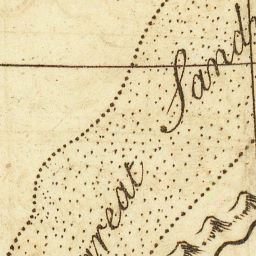 reat Sand